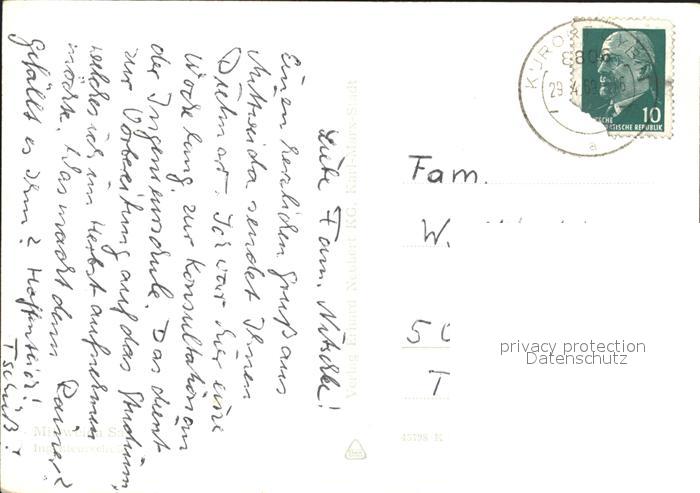 Liebe Fam. Nitsche!
Einen herzlichen Gruß aus
Mittweida sendet Ihnen
Dietmar. Ich war hier eine
Woche lang zur Konsultation an
der Ingenieurschule. Das dient
zur Vorbereitung auf das Studium,
welches ich im Herbst aufnehmen
möchte. Was macht denn Rainer?
Gefällt es ihm? Hoffentlich!
Tschüß!
Verlag Erhard Neubert KG, Karl-Marx-Stadt
Mittweida
Ingenieurschule
45198 K
KURORT
8806
29.4.69
a
10
DEUTSCHE
DEMOKRATISCHE REPUBLIK
Fam.
W.
50
T
privacy protection
Datenschutz